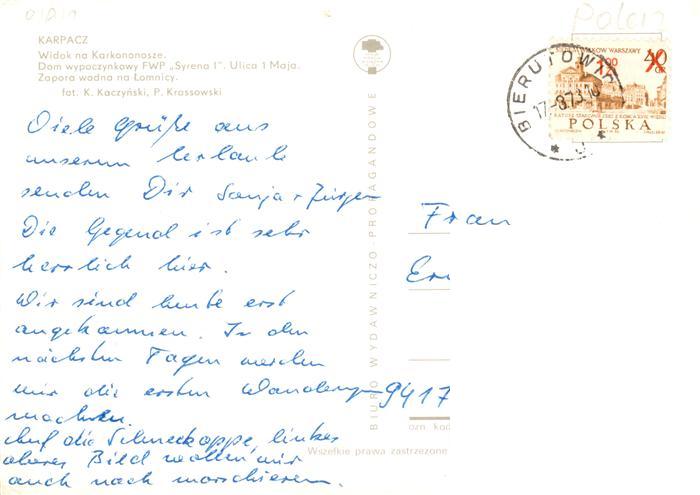 Polen
KARPACZ
Widok na Karkononosze.
Dom wypoczynkowy FWP „Syrena I". Ulica 1 Maja.
Zapora wodna na Łomnicy.
fot. K. Kaczyński, P. Krassowski
Viele Grüße aus
unserem Urlaub
senden Dir Sonja + Jürgen
Die Gegend ist sehr
herrlich hier.
Wir sind heute erst
angekommen. In den
nächsten Tagen werden
wir die ersten Wanderungen
machen.
Auf die Schneekoppe, linkes
oberes Bild wollen wir
auch noch marschieren.
BIURO WYDAWNICZO-PROPAGANDOWE
BIERUTOWICE
17-8.73
WARSZAWY
40
POLSKA
Frau
9417
ozn. kod
Wszelkie prawa zastrzeżone